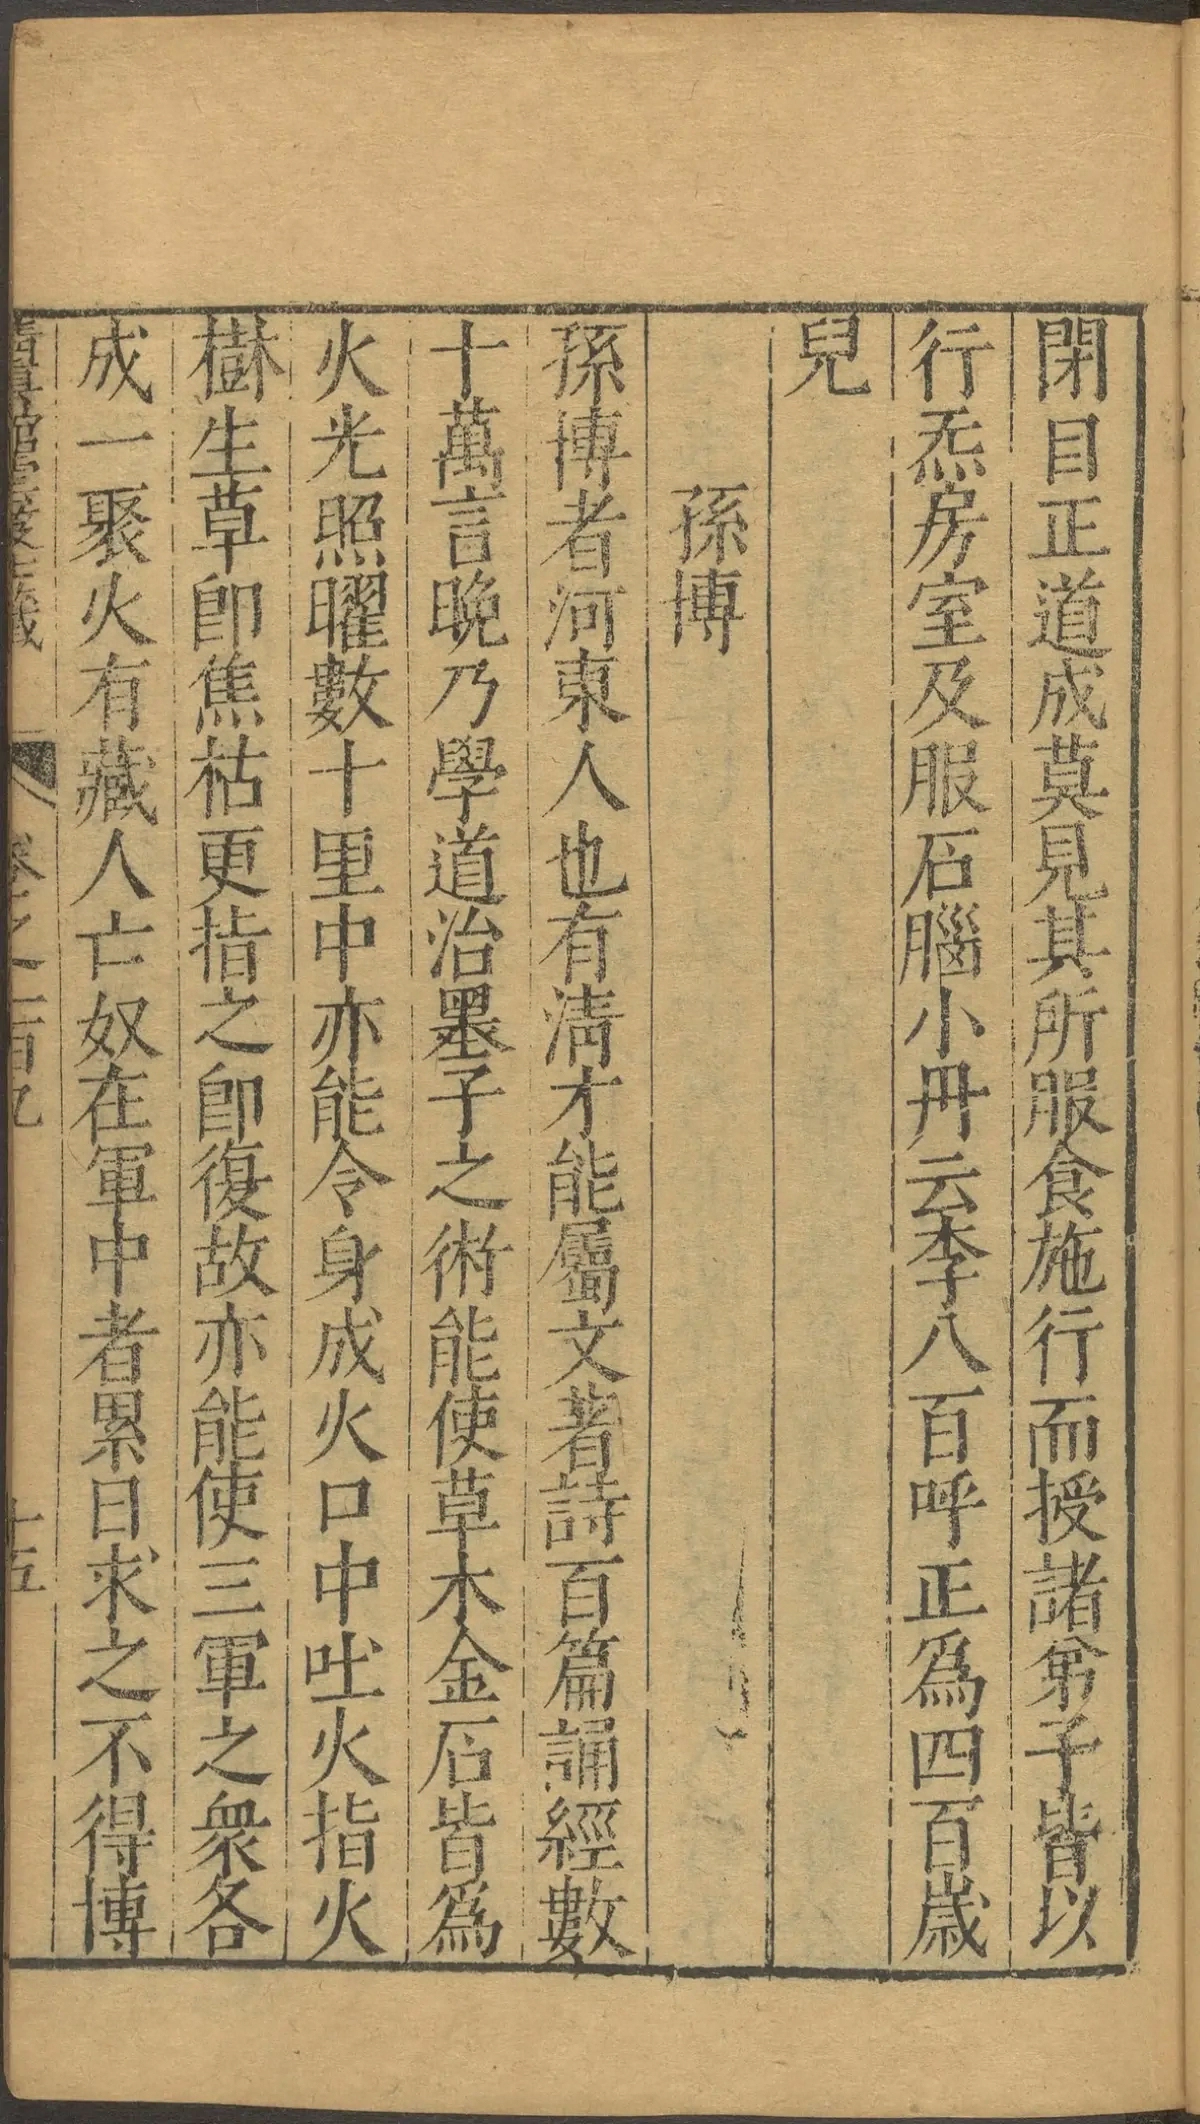 閉目正道成莫見其所服食施行而授諸弟子皆以
行炁房室及服石腦小丹云李八百呼正爲四百歲
兒
孫博
孫博者河東人也有淸才能屬文著詩百篇誦經數
十萬言晩乃學道治墨子之術能使草木金石皆爲
火光照曜數十里中亦能令身成火口中吐火指火
樹生草卽焦枯更指之卽復故亦能使三軍之衆各
成一聚火有藏人亡奴在軍中者累日求之不得博
清眞館雲笈七籤 卷之一百九 十五